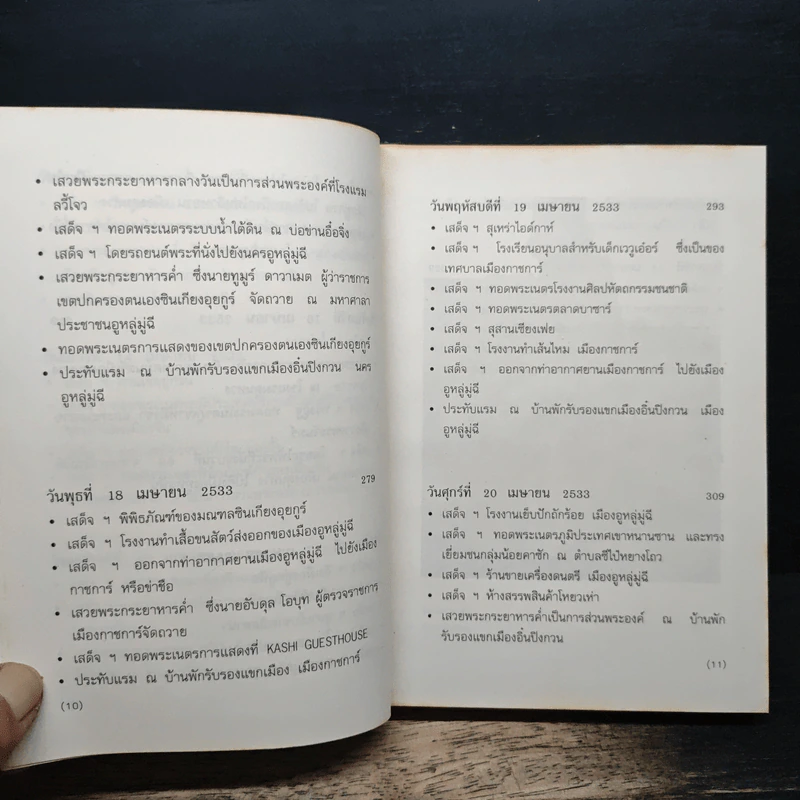 • เสวยพระกระยาหารกลางวันเป็นการส่วนพระองค์ที่โรงแรม
ลวี้โจว
• เสด็จ ฯ ทอดพระเนตรระบบน้ำใต้ดิน ณ บ่อข่านอื๋อจิ่ง
• เสด็จ ฯ โดยรถยนต์พระที่นั่งไปยังนครอูหลู่มู่ฉี
• เสวยพระกระยาหารค่ำ ซึ่งนายทูมูร์ ดาวาเมต ผู้ว่าราชการ
เขตปกครองตนเองซินเกียงอุยกูร์ จัดถวาย ณ มหาศาลา
ประชาชนอูหลู่มู่ฉี
• ทอดพระเนตรการแสดงของเขตปกครองตนเองซินเกียงอุยกูร์
• ประทับแรม ณ บ้านพักรับรองแขกเมืองอิ๋นปิงกวน นคร
อูหลู่มู่ฉี
วันพุธที่ 18 เมษายน 2533 279
• เสด็จ ฯ พิพิธภัณฑ์ของมณฑลซินเกียงอุยกูร์
• เสด็จ ฯ โรงงานทำเสื้อขนสัตว์ส่งออกของเมืองอูหลู่มู่ฉี
• เสด็จ ฯ ออกจากท่าอากาศยานเมืองอูหลู่มู่ฉี ไปยังเมือง
กาชการ์ หรือข่าชือ
• เสวยพระกระยาหารค่ำ ซึ่งนายอับดุล โอบุท ผู้ตรวจราชการ
เมืองกาชการ์จัดถวาย
• เสด็จ ฯ ทอดพระเนตรการแสดงที่ KASHI GUESTHOUSE
• ประทับแรม ณ บ้านพักรับรองแขกเมือง เมืองกาชการ์
(10)
วันพฤหัสบดีที่ 19 เมษายน 2533 293
• เสด็จ ฯ สุเหร่าไอด์กาห์
• เสด็จ ฯ โรงเรียนอนุบาลสำหรับเด็กเววูเอ๋อร์ ซึ่งเป็นของ
เทศบาลเมืองกาชการ์
• เสด็จ ฯ ทอดพระเนตรโรงงานศิลปหัตถกรรมชนชาติ
• เสด็จ ฯ ทอดพระเนตรตลาดบาซาร์
• เสด็จ ฯ สุสานเซียงเฟย
• เสด็จ ฯ โรงงานทำเส้นไหม เมืองกาชการ์
• เสด็จ ฯ ออกจากท่าอากาศยานเมืองกาชการ์ ไปยังเมือง
อูหลู่มู่ฉี
• ประทับแรม ณ บ้านพักรับรองแขกเมืองอิ๋นปิงกวน เมือง
อูหลู่มู่ฉี
วันศุกร์ที่ 20 เมษายน 2533 309
• เสด็จ ฯ โรงงานเย็บปักถักร้อย เมืองอูหลู่มู่ฉี
• เสด็จ ฯ ทอดพระเนตรภูมิประเทศเขาหนานซาน และทรง
เยี่ยมชนกลุ่มน้อยคาซัก ณ ตำบลซีไป๋หยางโถว
• เสด็จ ฯ ร้านขายเครื่องดนตรี เมืองอูหลู่มู่ฉี
• เสด็จ ฯ ห้างสรรพสินค้าโหยวเห่า
• เสวยพระกระยาหารค่ำเป็นการส่วนพระองค์ ณ บ้านพัก
รับรองแขกเมืองอิ๋นปิงกวน
(11)